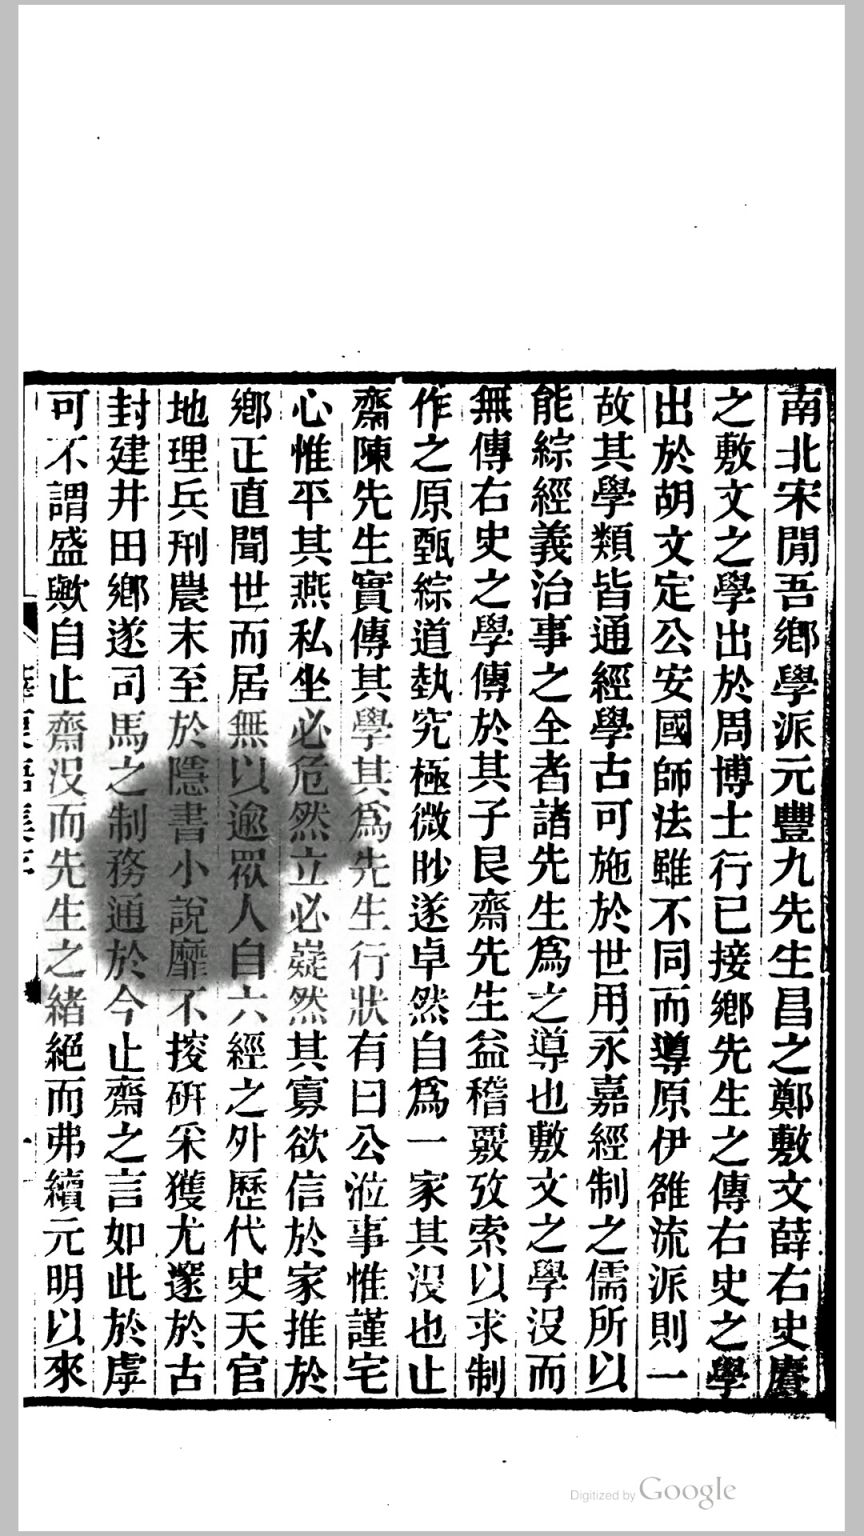 南北宋閒吾鄕學派元豐九先生昌之鄭敷文薛右史賡
之敷文之學出於周博士行已接鄕先生之傳右史之學
出於胡文定公安國師法雖不同而導原伊雒流派則一
故其學類皆通經學古可施於世用永嘉經制之儒所以
能綜經義治事之全者諸先生爲之導也敷文之學沒而
無傳右史之學傳於其子艮齋先生益稽覈攷索以求制
作之原甄綜道埶究極微眇遂卓然自爲一家其沒也止
齋陳先生實傳其學其爲先生行狀有曰公涖事惟謹宅
心惟平其燕私坐必危然立必嶷然其寡欲信於家推於
鄕正直聞世而居無以逾眾人自六經之外歷代史天官
地理兵刑農末至於隱書小說靡不搜硏采獲尤邃於古
封建井田鄕遂司馬之制務通於今止齋之言如此於虖
可不謂盛歟自止齋沒而先生之緒絕而弗續元明以來
Digitized by Google